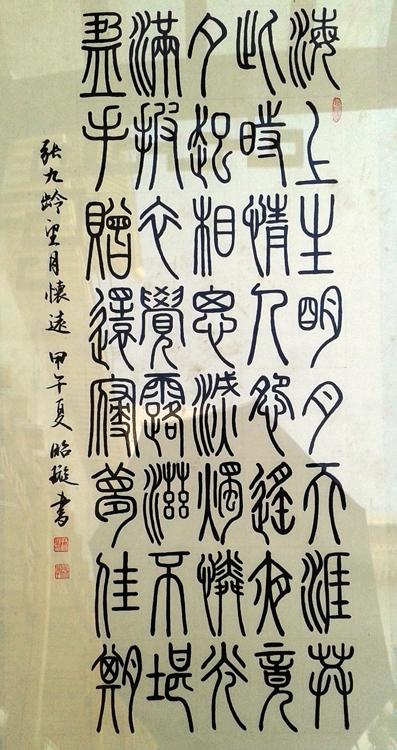 海上生明月天涯共
此時情人怨遙夜竟
夕起相思滅燭憐光
滿披衣覺露滋不堪
盈手贈還寢夢佳期
張九齡望月懷遠 甲午夏 昭璇書